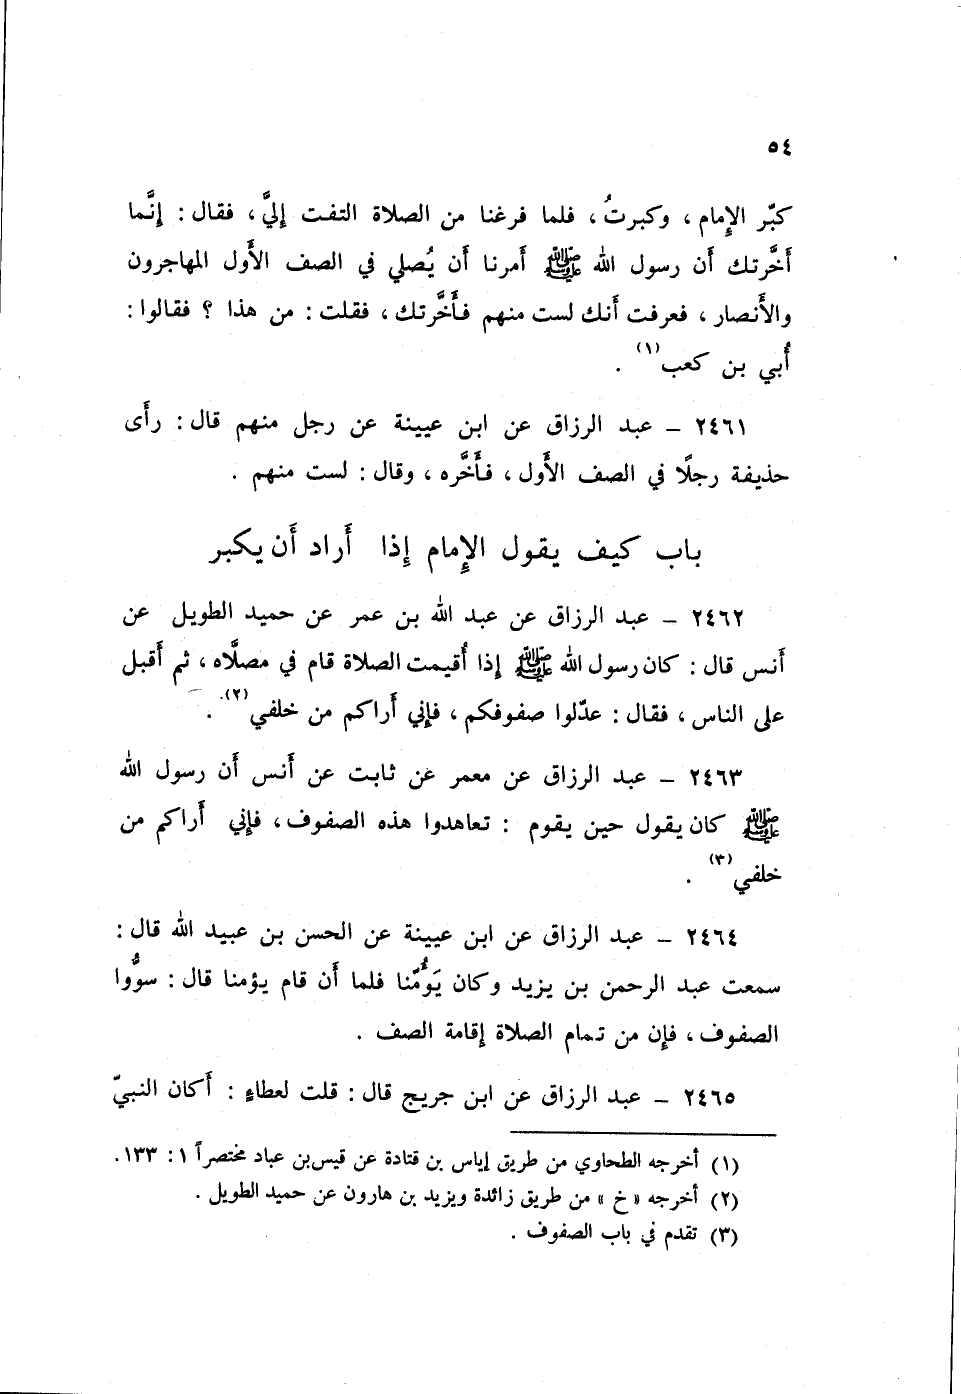 ٥٤
كبّر الإِمام ، وكبرتُ ، فلما فرغنا من الصلاة التفت إليَّ ، فقال : إنَّما
أَخَّرتك أَن رسول الله ﷺ أمرنا أَن يُصلي في الصف الأَول المهاجرون
والأَنصار ، فعرفت أَنك لست منهم فأَخَّرتك ، فقلت : من هذا ؟ فقالوا :
أُبي بن كعب (١) .
٢٤٦١ – عبد الرزاق عن ابن عيينة عن رجل منهم قال : رأَى
حذيفة رجلًا في الصف الأَول ، فأَخَّره ، وقال : لست منهم .
باب كيف يقول الإِمام إِذا أَراد أَن يكبر
٢٤٦٢ – عبد الرزاق عن عبد الله بن عمر عن حميد الطويل عن
أَنس قال : كان رسول الله ﷺ إِذا أُقيمت الصلاة قام في مصلَّاه ، ثم أَقبل
على الناس ، فقال : عدّلوا صفوفكم ، فإِني أَراكم من خلفي (٢) .
٢٤٦٣ – عبد الرزاق عن معمر عن ثابت عن أَنس أَن رسول الله
ﷺ كان يقول حين يقوم : تعاهدوا هذه الصفوف ، فإِني أَراكم من
خلفي (٣) .
٢٤٦٤ – عبد الرزاق عن ابن عيينة عن الحسن بن عبيد الله قال :
سمعت عبد الرحمن بن يزيد وكان يَؤُمّنا فلما أَن قام يؤمنا قال : سوُّوا
الصفوف ، فإِن من تمام الصلاة إِقامة الصف .
٢٤٦٥ – عبد الرزاق عن ابن جريج قال : قلت لعطاءٍ : أَكان النبيّ
(١) أخرجه الطحاوي من طريق إياس بن قتادة عن قيس بن عباد مختصراً ١ : ١٣٣ .
(٢) أخرجه « خ » من طريق زائدة ويزيد بن هارون عن حميد الطويل .
(٣) تقدم في باب الصفوف .